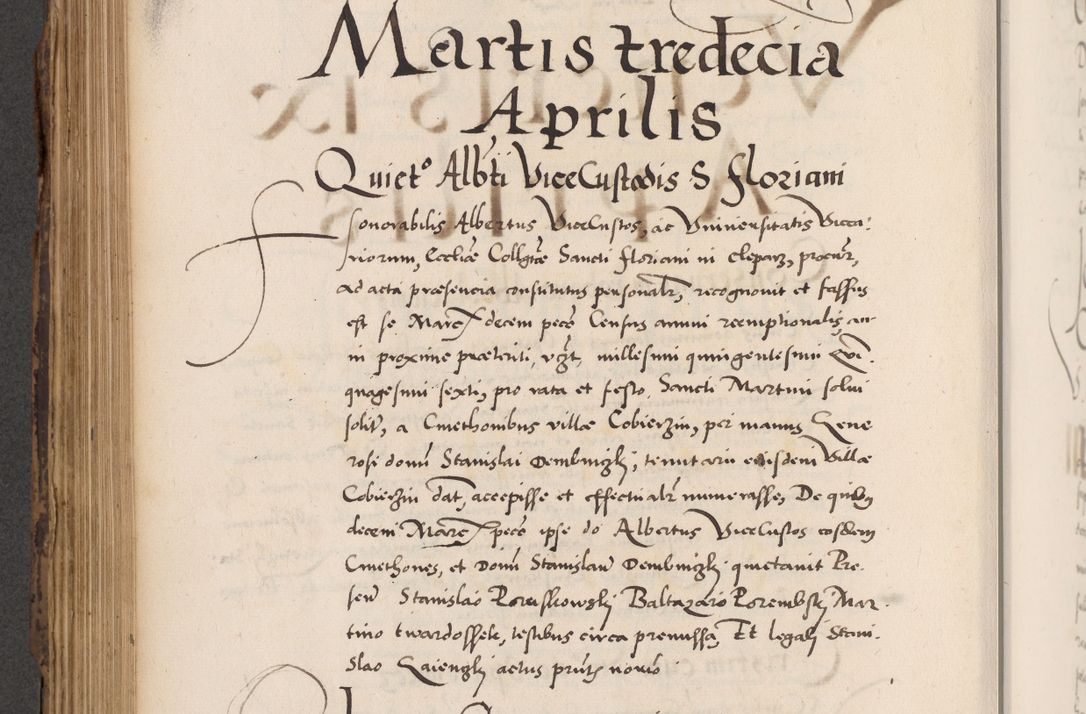 Martis tredecia
Aprilis
Quiet⁰ Albti ViceCustodis S Floriani
Honorabilis Albertus ViceCustos, ac Universitatis Vicca:
riorum, Eccliæ Collgtæ Sancti Floriani in Cleparz, procur,
ad acta præsencia constitutus personalr, recognovit et fassus
est se Marc decem pecc Census annui reemptionalis an-
ni proxime præteriti, vzt, millesimi quingentesimi Qui-
quagesimi sexti, pro rata et festo Sancti Martini solui
solit, a Cmethonibus villæ Cobierzin, per manus Gene
rosi domi Stanislai Dembinszkj, tenutarii eiusdem Villæ
Cobierzin dat, accepisse et effectualr numerasse, De quibus
decem Marc pecc ipse do Albertus ViceCustos eosdem
Cmethones, et Domi Stanislau Dembinszkj quietauit Pre-
sen Stanislao Baltazaro Porembskj Mar-
tino twardossek, testibus circa premissa, Et legalj Stani-
slao actus prnts novio